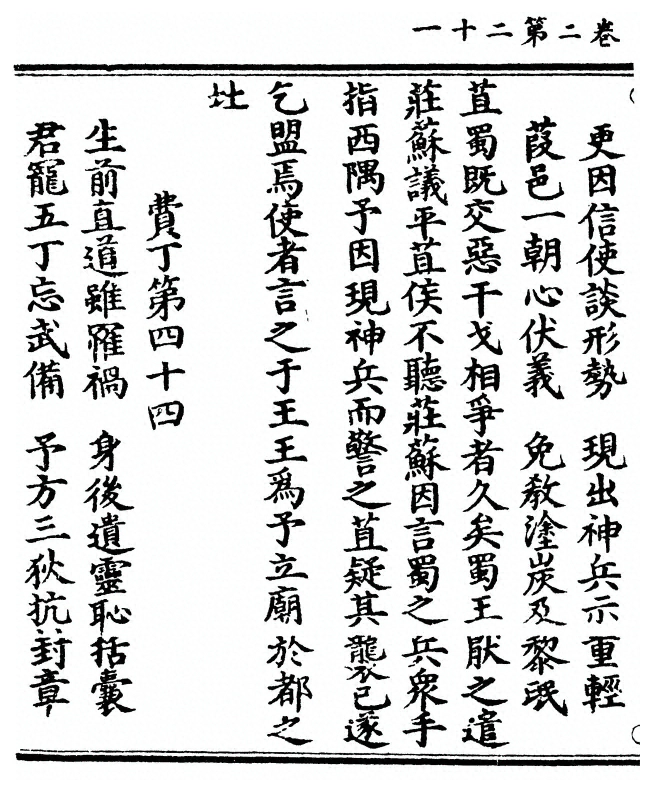 卷二第二十一
更因信使談形勢　現出神兵示重輕
葭邑一朝心伏義　免教塗炭及黎氓
苴蜀既交惡干戈相爭者久矣蜀王厭之遣
莊蘇議平苴侯不聽莊蘇因言蜀之兵眾手
指西隅予因現神兵而警之苴疑其襲己遂
乞盟焉使者言之于王王爲予立廟於都之
北
費丁第四十四
生前直道雖罹禍　身後遺靈恥括囊
君寵五丁忘武備　予方三狄抗封章